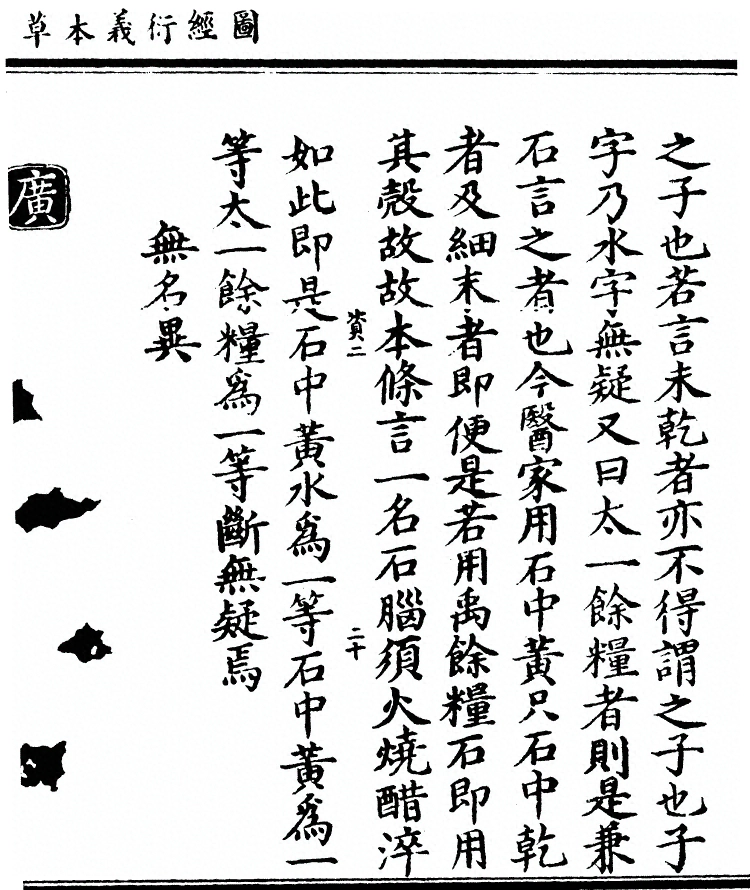 圖經衍義本草
之子也若言未乾者亦不得謂之子也子
字乃水字無疑又曰太一餘糧者則是兼
石言之者也今醫家用石中黃只石中乾
者及細末者即便是若用禹餘糧石即用
其殼故故本條言一名石腦須火燒醋淬
資二
二十
如此即是石中黃水為一等石中黃為一
等太一餘糧為一等斷無疑焉
無名異
廣